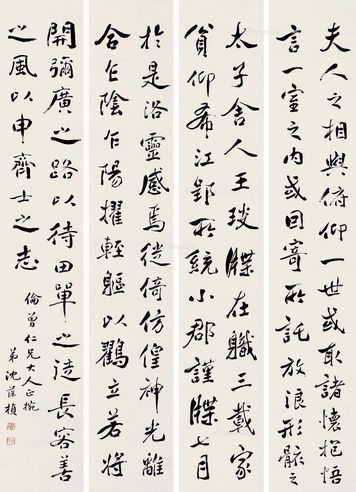 夫人之相與俯仰一世或取諸懷抱悟
言一室之内或因寄所託放浪形骸之
太子舍人王琰牒在職三載家
貧仰希江郢所統小郡謹牒七月
於是洛靈感焉徙倚仿偟神光離
合乍陰乍陽擢輕軀以鶴立若將
開彌廣之路以待田單之徒長容善
之風以申齊士之志
倫曾仁兄大人正捥
弟沈葆楨